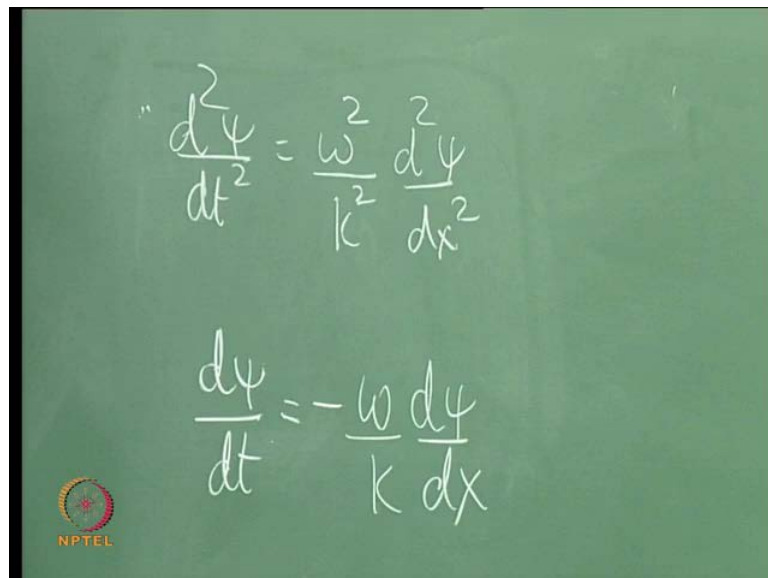 d²ψ/dt² = ω²/k² d²ψ/dx²
dψ/dt = -ω/k dψ/dx
NPTEL